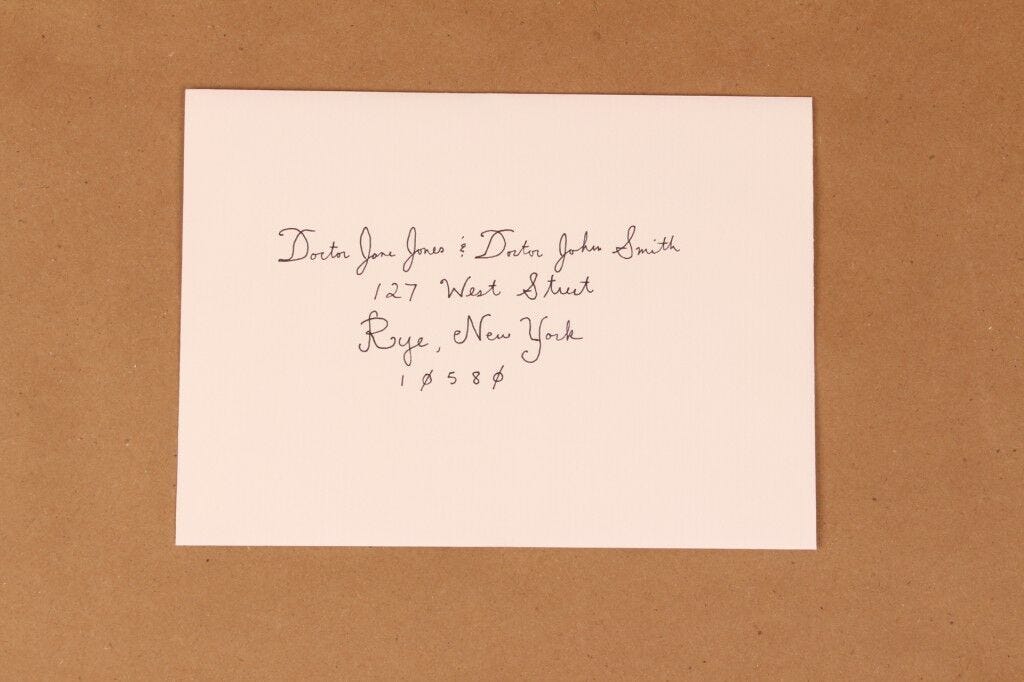 Doctor Jane Jones & Doctor John Smith
127 West Street
Rye, New York
10580